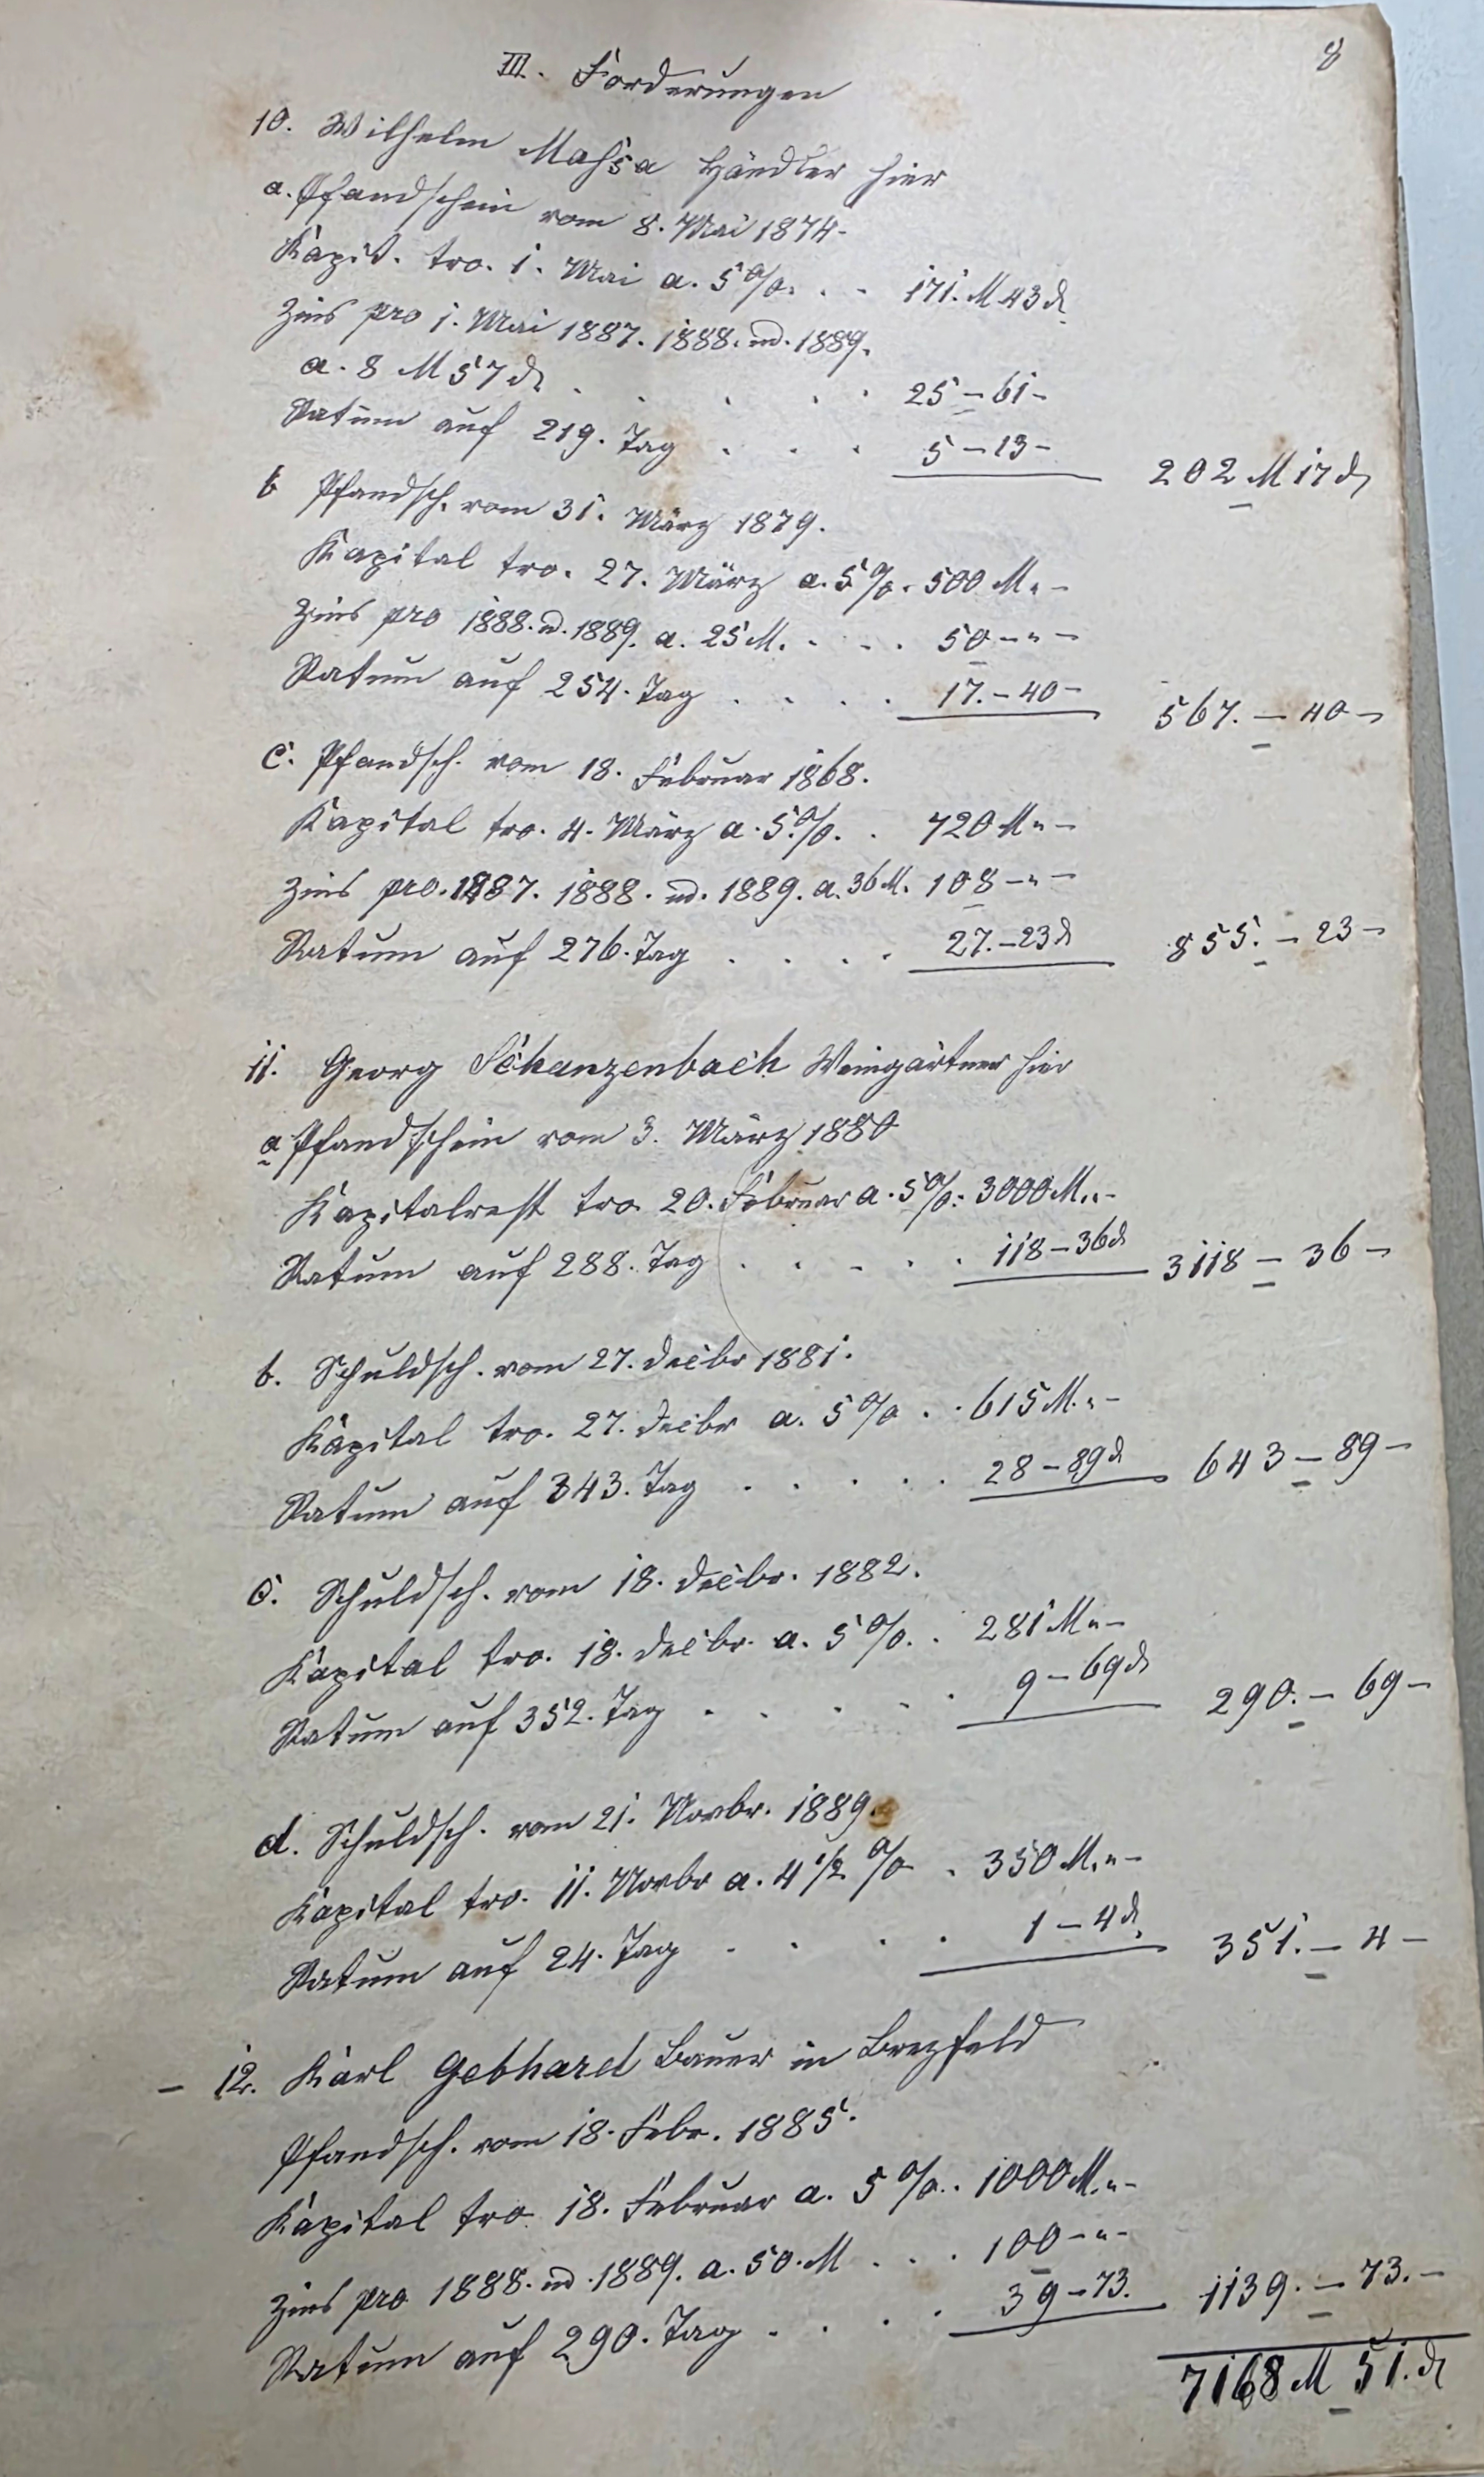 8
III. Forderungen
10. Wilhelm Massa Händler hier
a. Pfandschein vom 8. Mai 1874.
Kapit. tro. 1. Mai a. 5%. . . 171. M 43 d
Zins pro 1. Mai 1887. 1888. ud. 1889.
a. 8 M 57 d . . . . . 25 – 61 –
Ratum auf 219. Tag . . . 5 – 13 – 202 M 17 d
b Pfandsch. vom 31. März 1879.
Kapital tro. 27. März a. 5%. 500 M. „ –
Zins pro 1888. ud. 1889. a. 25 M. . . . 50 – „ –
Ratum auf 254. Tag . . . . 17. – 40 – 567. – 40 –
c. Pfandsch. vom 18. Februar 1868.
Kapital tro. 4. März a. 5%. . 720 M „ –
Zins pro. 1887. 1888. ud. 1889. a. 36 M. 108 – „ –
Ratum auf 276. Tag . . . . 27. – 23 d 855. – 23 –
11. Georg Schanzenbach Weingärtner hier
a Pfandschein vom 3. März 1880
Kapitalrest tro. 20. Februar a. 5%. 3000 M. „ –
Ratum auf 288. Tag . . . . . 118 – 36 d 3118 – 36 –
b. Schuldsch. vom 27. Decbr 1881.
Kapital tro. 27. Decbr a. 5% . . 615 M. „ –
Ratum auf 343. Tag . . . . . 28 – 89 d 643 – 89 –
c. Schuldsch. vom 18. Decbr. 1882.
Kapital tro. 18. Decbr. a. 5%. . 281 M „ –
Ratum auf 352. Tag . . . . . 9 – 69 d 290. – 69 –
d. Schuldsch. vom 21. Novbr. 1889.
Kapital tro. 11. Novbr a. 4 1/2 % . 350 M. „ –
Ratum auf 24. Tag . . . . 1 – 4 d. 351. – 4 –
– 12. Karl Gebhard Bauer in Brezfeld
Pfandsch. vom 18. Febr. 1885.
Kapital tro. 18. Februar a. 5%. . 1000 M. „ –
Zins pro 1888. ud. 1889. a. 50. M . . . 100 – „ –
Ratum auf 290. Tag . . . . 39 – 73. 1139. – 73. –
7168 M 51. d